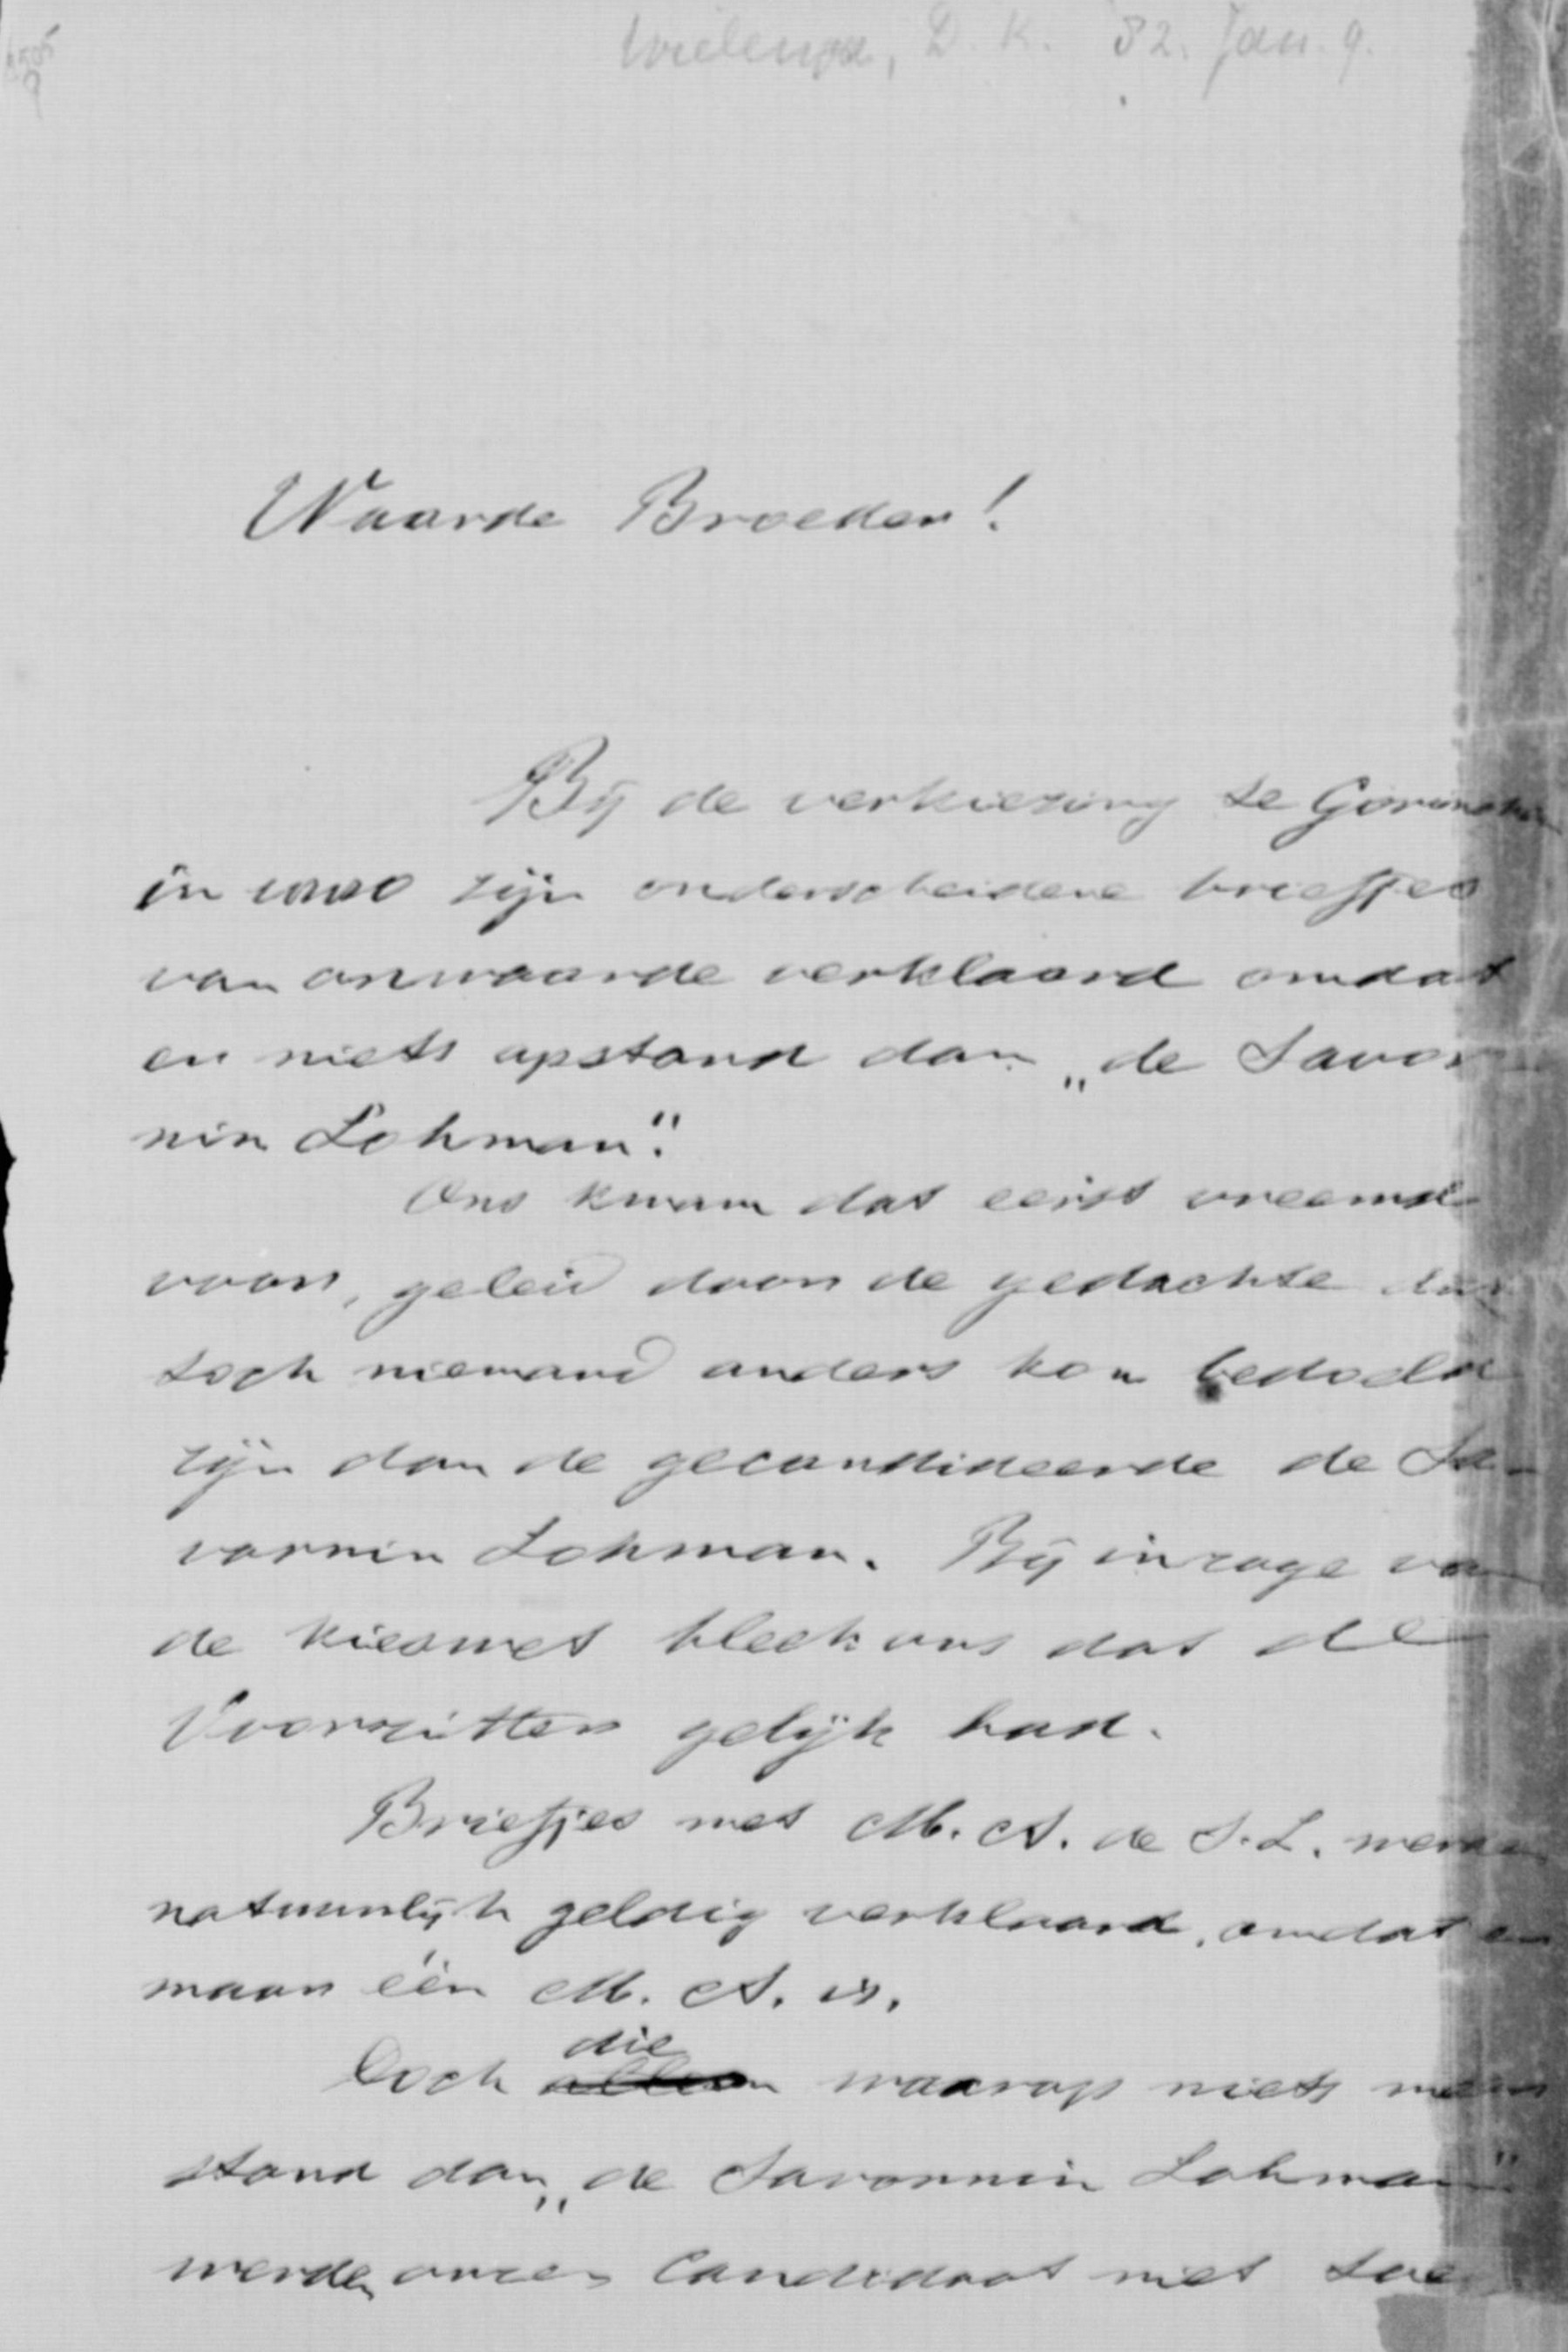 Wielenga, D. K. 82. Jan. 9.
Waarde Broeder!
Bij de verkiezing te Gorinchem
in 1880 zijn onderscheidene briefjes
van onwaarde verklaard omdat
er niets opstond dan „de Savor
nin Lohman".
Ons kwam dat eerst vreemd
voor, geleid door de gedachte dat
toch niemand anders kon bedoeld
zijn dan de gecandideerde de Sa-
vornin Lohman. Bij inzage van
de kieswet bleek ons dat de
Voorzitter gelijk had.
Briefjes met M. A. de S. L. werden
natuurlijk geldig verklaard, omdat er
maar één M. A. is.
die
Doch alleen waarop niets meer
stond dan „de Savornin Lohman"
werden onzen Candidaat niet toe